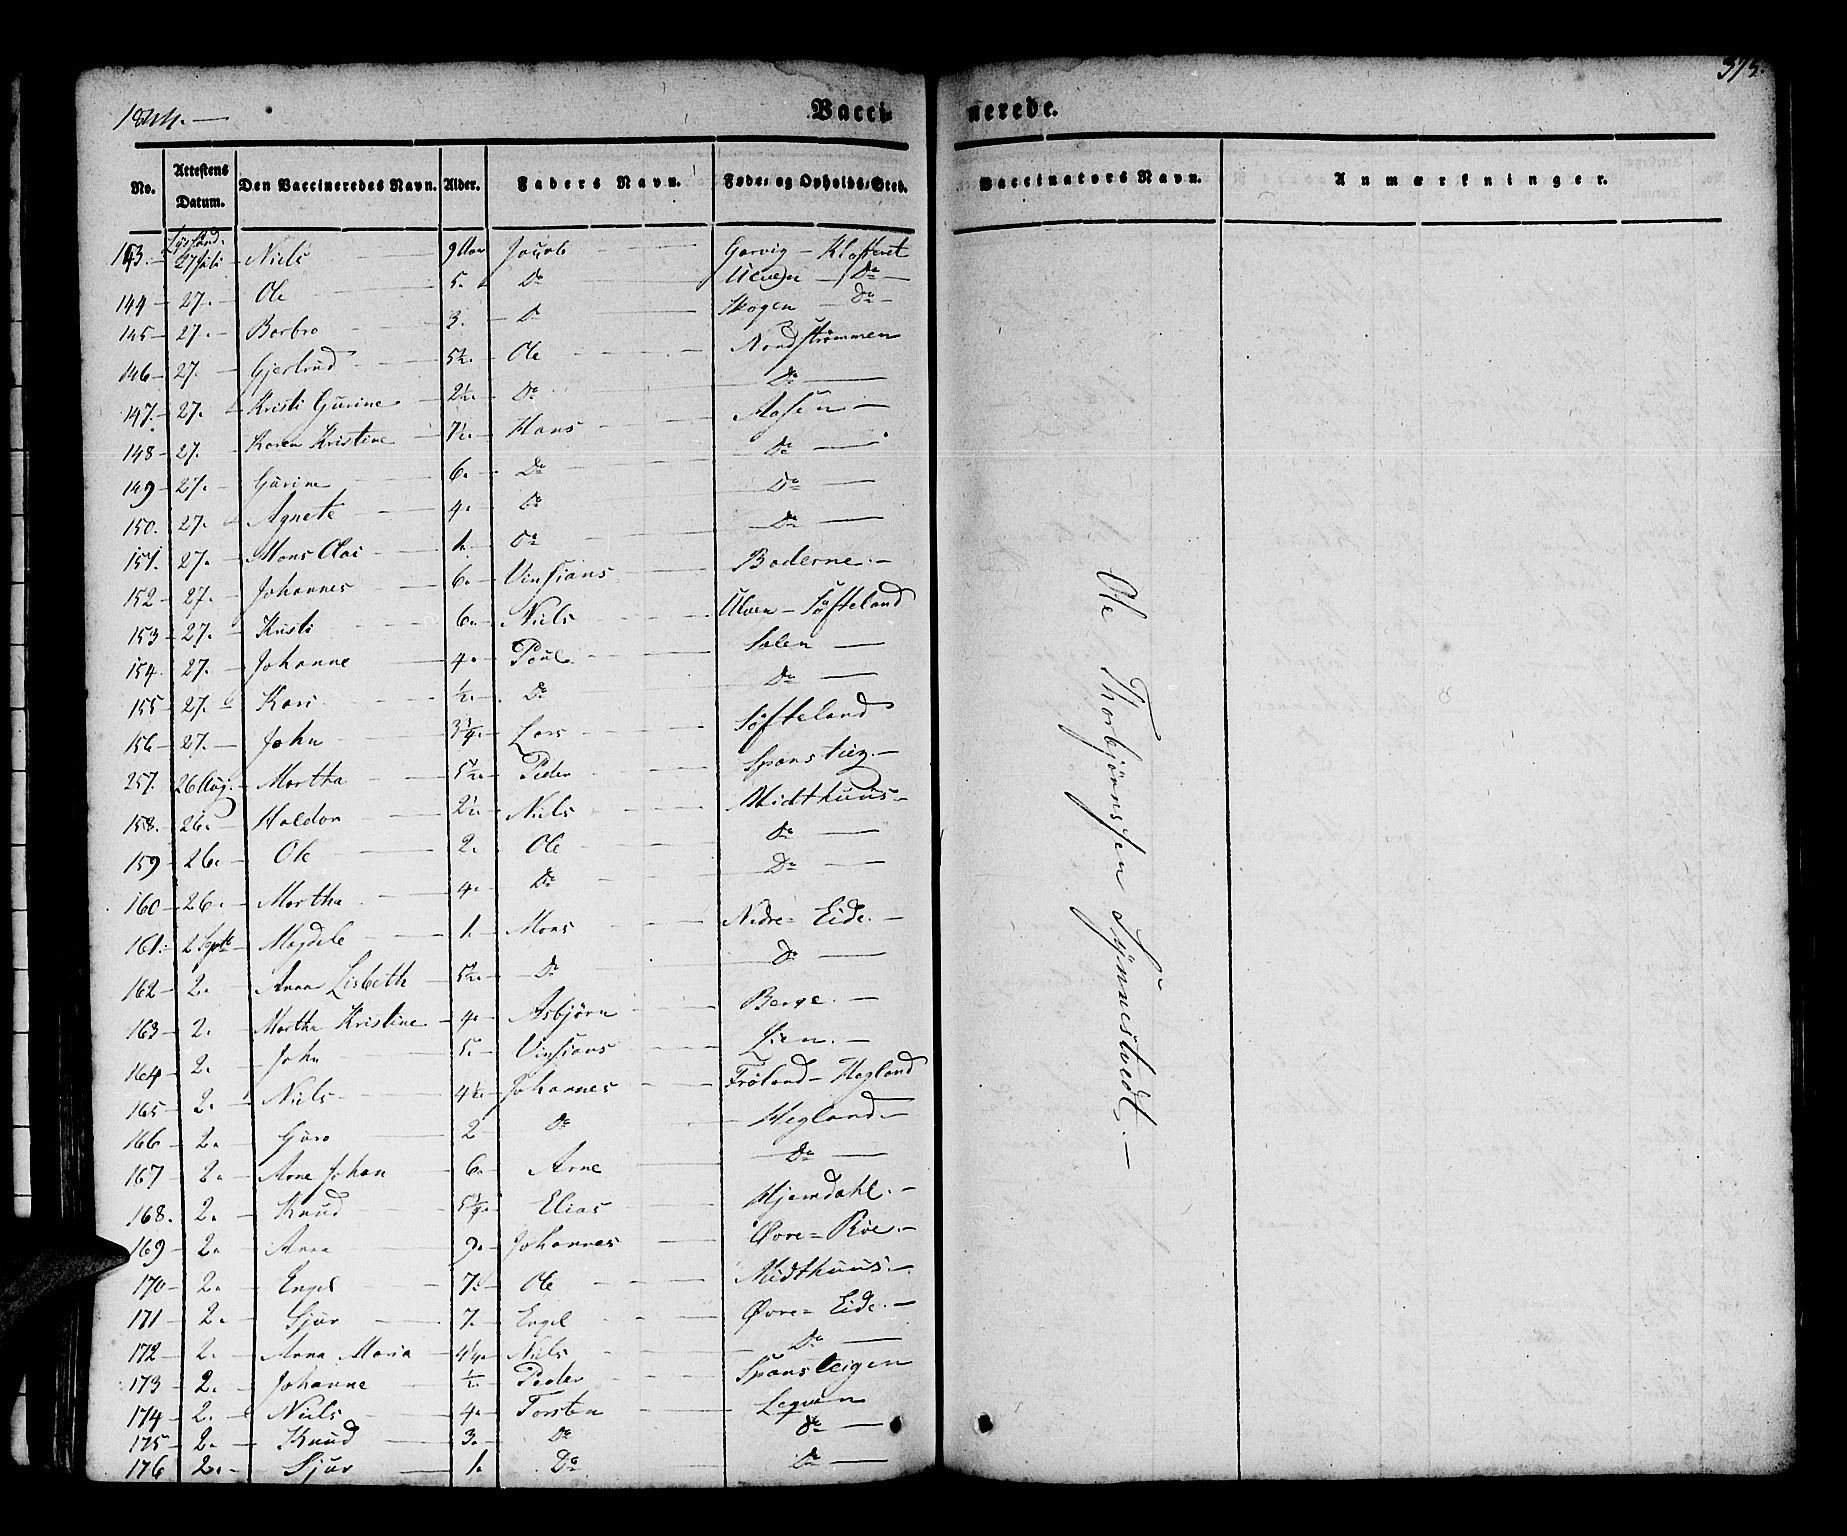 1844. —
Vacci-
nerede.
375.
No. Attestens Datum. Den Vaccineredes Navn. Alder. Faders Navn. Føde- og Opholds-Sted. Vaccinators Navn. Anmærkninger.
143. 27 Juli Niels 9 Aar Jacob Garvig —
144 — 27. — Ole 5. Do Ulven — Do —
145 — 27. — Barbro 3. Do Skogen — Do —
146 — 27. — Gjertrud 5½. Ole Nordstrømmen
147. — 27. Kristi Gurine 2½. Do Do —
148 — 27. Karen Kristine 7½. Hans Aasen —
149 — 27. Gurine 6. Do Do —
150. 27. Agnete 4. Do Do —
151. 27. Mons Olai 1. Do Do —
152 — 27. Johannes 6. Vinsians Boderne. —
153 — 27. Kristi 6. Niels Ulven — Søfteland
154. 27. Johanne 4. Poul Salen —
155 — 27. Kari ½. Do Do —
156 — 27. — John 3¾. Lars Søfteland
257. 26 Aug. — Martha 5½. Peder Spanstieg. —
158. — 26. Haldor 2½. Niels Midthuus —
159 — 26. Ole 2. Ole Do —
160 — 26. — Martha 4. Do Do —
161. — 2 Septbr Magdele 1. Mons Nedre = Eide. —
162 — 2. Anna Lisbeth 5½. Do Do —
163 — 2. Martha Kristine 4. Asbjørn Berge. —
164 — 2. John 5. Vinsians Lien. —
165 — 2. Niels 4½. Johannes Frøland — Hegland
166 — 2. Guro 2 Do Hegland —
167 — 2. Arne Johan 6. Arne Do —
168. — 2. Knud 5¾. Elias Hjemdahl. —
169 — 2. Anna 9. Johannes Øvre = Røe. —
170 — 2. Engel 7. Ole Midthuus. —
171 — 2. Sjur 7. Engel Øvre = Eide. —
172 — 2. Anna Maria 4¼. Niels Do —
173 — 2. Johanne ½. Peder Spansteigen
174 — 2. Niels 4. Torsten Legven
175 — 2. Knud 3. Do Do —
176 2. — Sjur 1. Do Do —
Ole Thorbjørnsen Synnestvedt. —